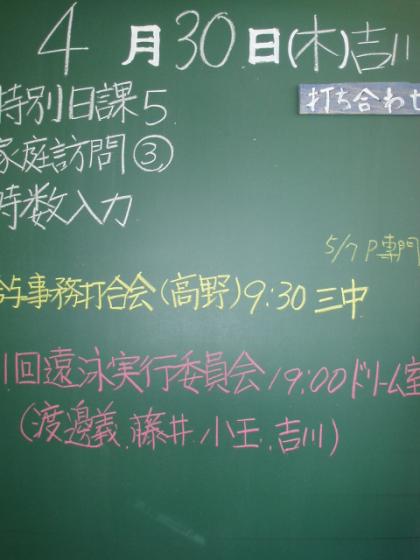 4月30日(木)吉川
打ち合わせ
特別日課5
家庭訪問③
時数入力
5/7 P専門
給与事務打合会(高野)9:30 三中
1回遠泳実行委員会 19:00 ドリーム室
(渡邊義.藤井.小王.吉川)